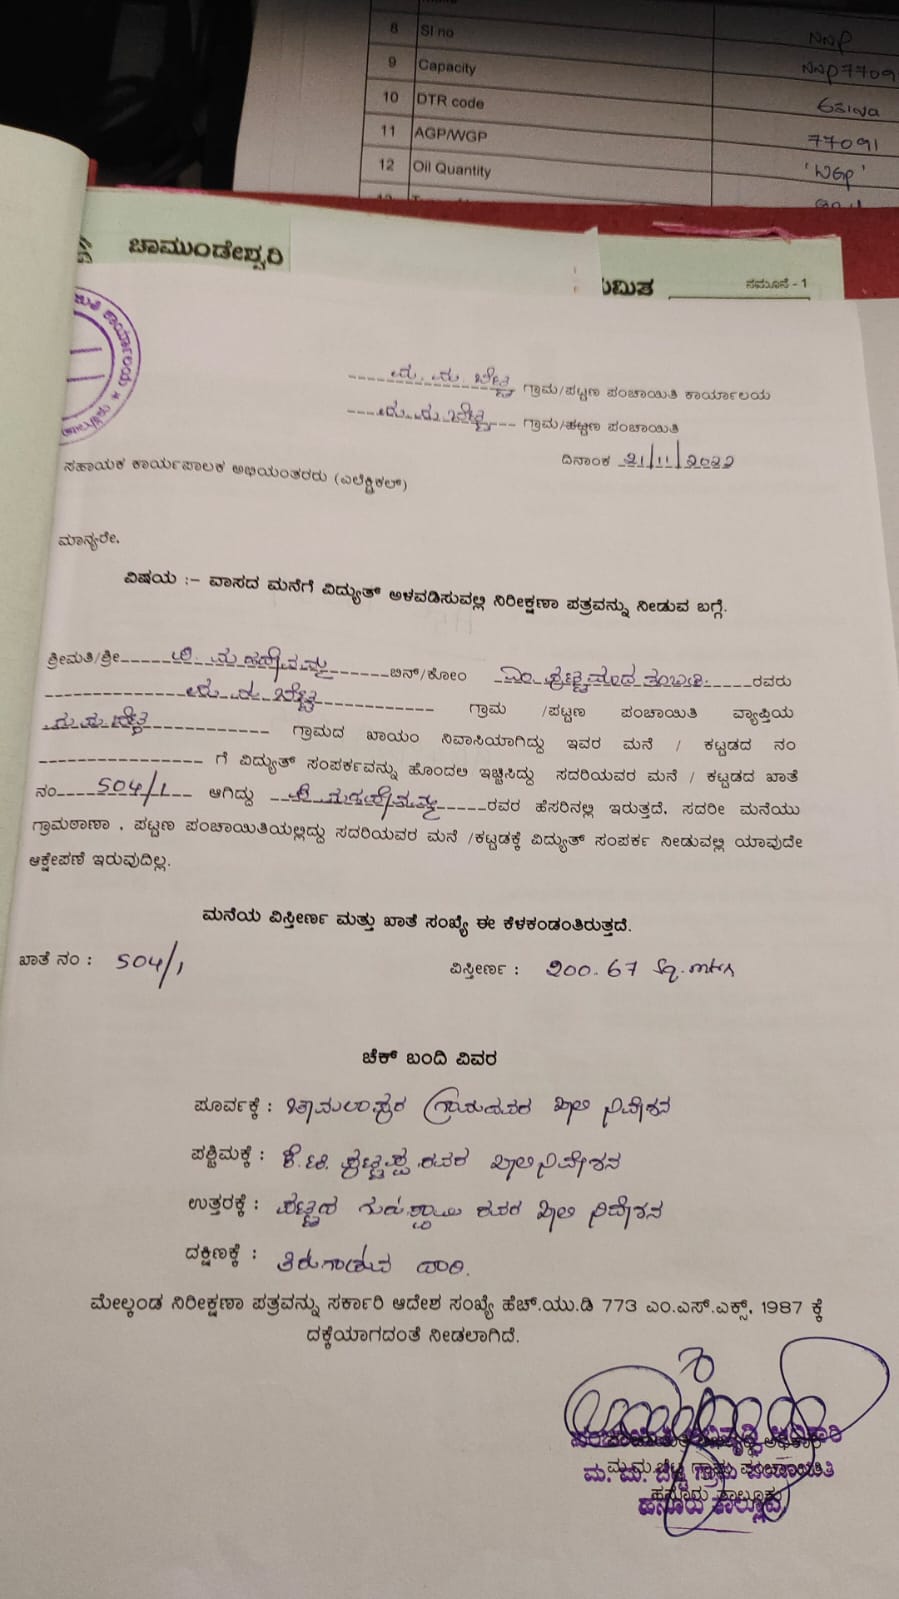 8 Sl no NNP
9 Capacity NNP7709
10 DTR code
11 AGP/WGP 77091
12 Oil Quantity 'WGP'
ಚಾಮುಂಡೇಶ್ವರಿ
ನಮೂನೆ - 1
ಮ. ಮ. ಬೆಟ್ಟ ಗ್ರಾಮ/ಪಟ್ಟಣ ಪಂಚಾಯಿತಿ ಕಾರ್ಯಾಲಯ
ಮ. ಮ. ಬೆಟ್ಟ ಗ್ರಾಮ/ಪಟ್ಟಣ ಪಂಚಾಯಿತಿ
ದಿನಾಂಕ 21/11/2022
ಸಹಾಯಕ ಕಾರ್ಯಪಾಲಕ ಅಭಿಯಂತರರು (ಎಲೆಕ್ಟ್ರಿಕಲ್)
ಮಾನ್ಯರೇ,
ವಿಷಯ :- ವಾಸದ ಮನೆಗೆ ವಿದ್ಯುತ್ ಅಳವಡಿಸುವಲ್ಲಿ ನಿರೀಕ್ಷಣಾ ಪತ್ರವನ್ನು ನೀಡುವ ಬಗ್ಗೆ.
ಶ್ರೀಮತಿ/ಶ್ರೀ ಬಿನ್/ಕೋಂ ರವರು
ಮ. ಮ. ಬೆಟ್ಟ ಗ್ರಾಮ /ಪಟ್ಟಣ ಪಂಚಾಯಿತಿ ವ್ಯಾಪ್ತಿಯ
ಮ. ಮ. ಬೆಟ್ಟ ಗ್ರಾಮದ ಖಾಯಂ ನಿವಾಸಿಯಾಗಿದ್ದು ಇವರ ಮನೆ / ಕಟ್ಟಡದ ನಂ
ಗೆ ವಿದ್ಯುತ್ ಸಂಪರ್ಕವನ್ನು ಹೊಂದಲು ಇಚ್ಚಿಸಿದ್ದು ಸದರಿಯವರ ಮನೆ / ಕಟ್ಟಡದ ಖಾತೆ
ನಂ 504/1 ಆಗಿದ್ದು ರವರ ಹೆಸರಿನಲ್ಲಿ ಇರುತ್ತದೆ. ಸದರೀ ಮನೆಯು
ಗ್ರಾಮಠಾಣಾ , ಪಟ್ಟಣ ಪಂಚಾಯಿತಿಯಲ್ಲಿದ್ದು ಸದರಿಯವರ ಮನೆ /ಕಟ್ಟಡಕ್ಕೆ ವಿದ್ಯುತ್ ಸಂಪರ್ಕ ನೀಡುವಲ್ಲಿ ಯಾವುದೇ
ಆಕ್ಷೇಪಣೆ ಇರುವುದಿಲ್ಲ.
ಮನೆಯ ವಿಸ್ತೀರ್ಣ ಮತ್ತು ಖಾತೆ ಸಂಖ್ಯೆ ಈ ಕೆಳಕಂಡಂತಿರುತ್ತದೆ.
ಖಾತೆ ನಂ : 504/1 ವಿಸ್ತೀರ್ಣ : 200.67 Sq.mtrs
ಚೆಕ್ ಬಂದಿ ವಿವರ
ಪೂರ್ವಕ್ಕೆ : ಖಾಲಿ ನಿವೇಶನ
ಪಶ್ಚಿಮಕ್ಕೆ : ರವರ ಖಾಲಿ ನಿವೇಶನ
ಉತ್ತರಕ್ಕೆ : ರವರ ಖಾಲಿ ನಿವೇಶನ
ದಕ್ಷಿಣಕ್ಕೆ : ತಿರುಗಾಡುವ ದಾರಿ.
ಮೇಲ್ಕಂಡ ನಿರೀಕ್ಷಣಾ ಪತ್ರವನ್ನು ಸರ್ಕಾರಿ ಆದೇಶ ಸಂಖ್ಯೆ ಹೆಚ್.ಯು.ಡಿ 773 ಎಂ.ಎಸ್.ಎಕ್ಸ್. 1987 ಕ್ಕೆ
ದಕ್ಕೆಯಾಗದಂತೆ ನೀಡಲಾಗಿದೆ.
ಮ. ಮ. ಬೆಟ್ಟ ಗ್ರಾಮ ಪಂಚಾಯಿತಿ
ಹನೂರು ತಾಲ್ಲೂಕು